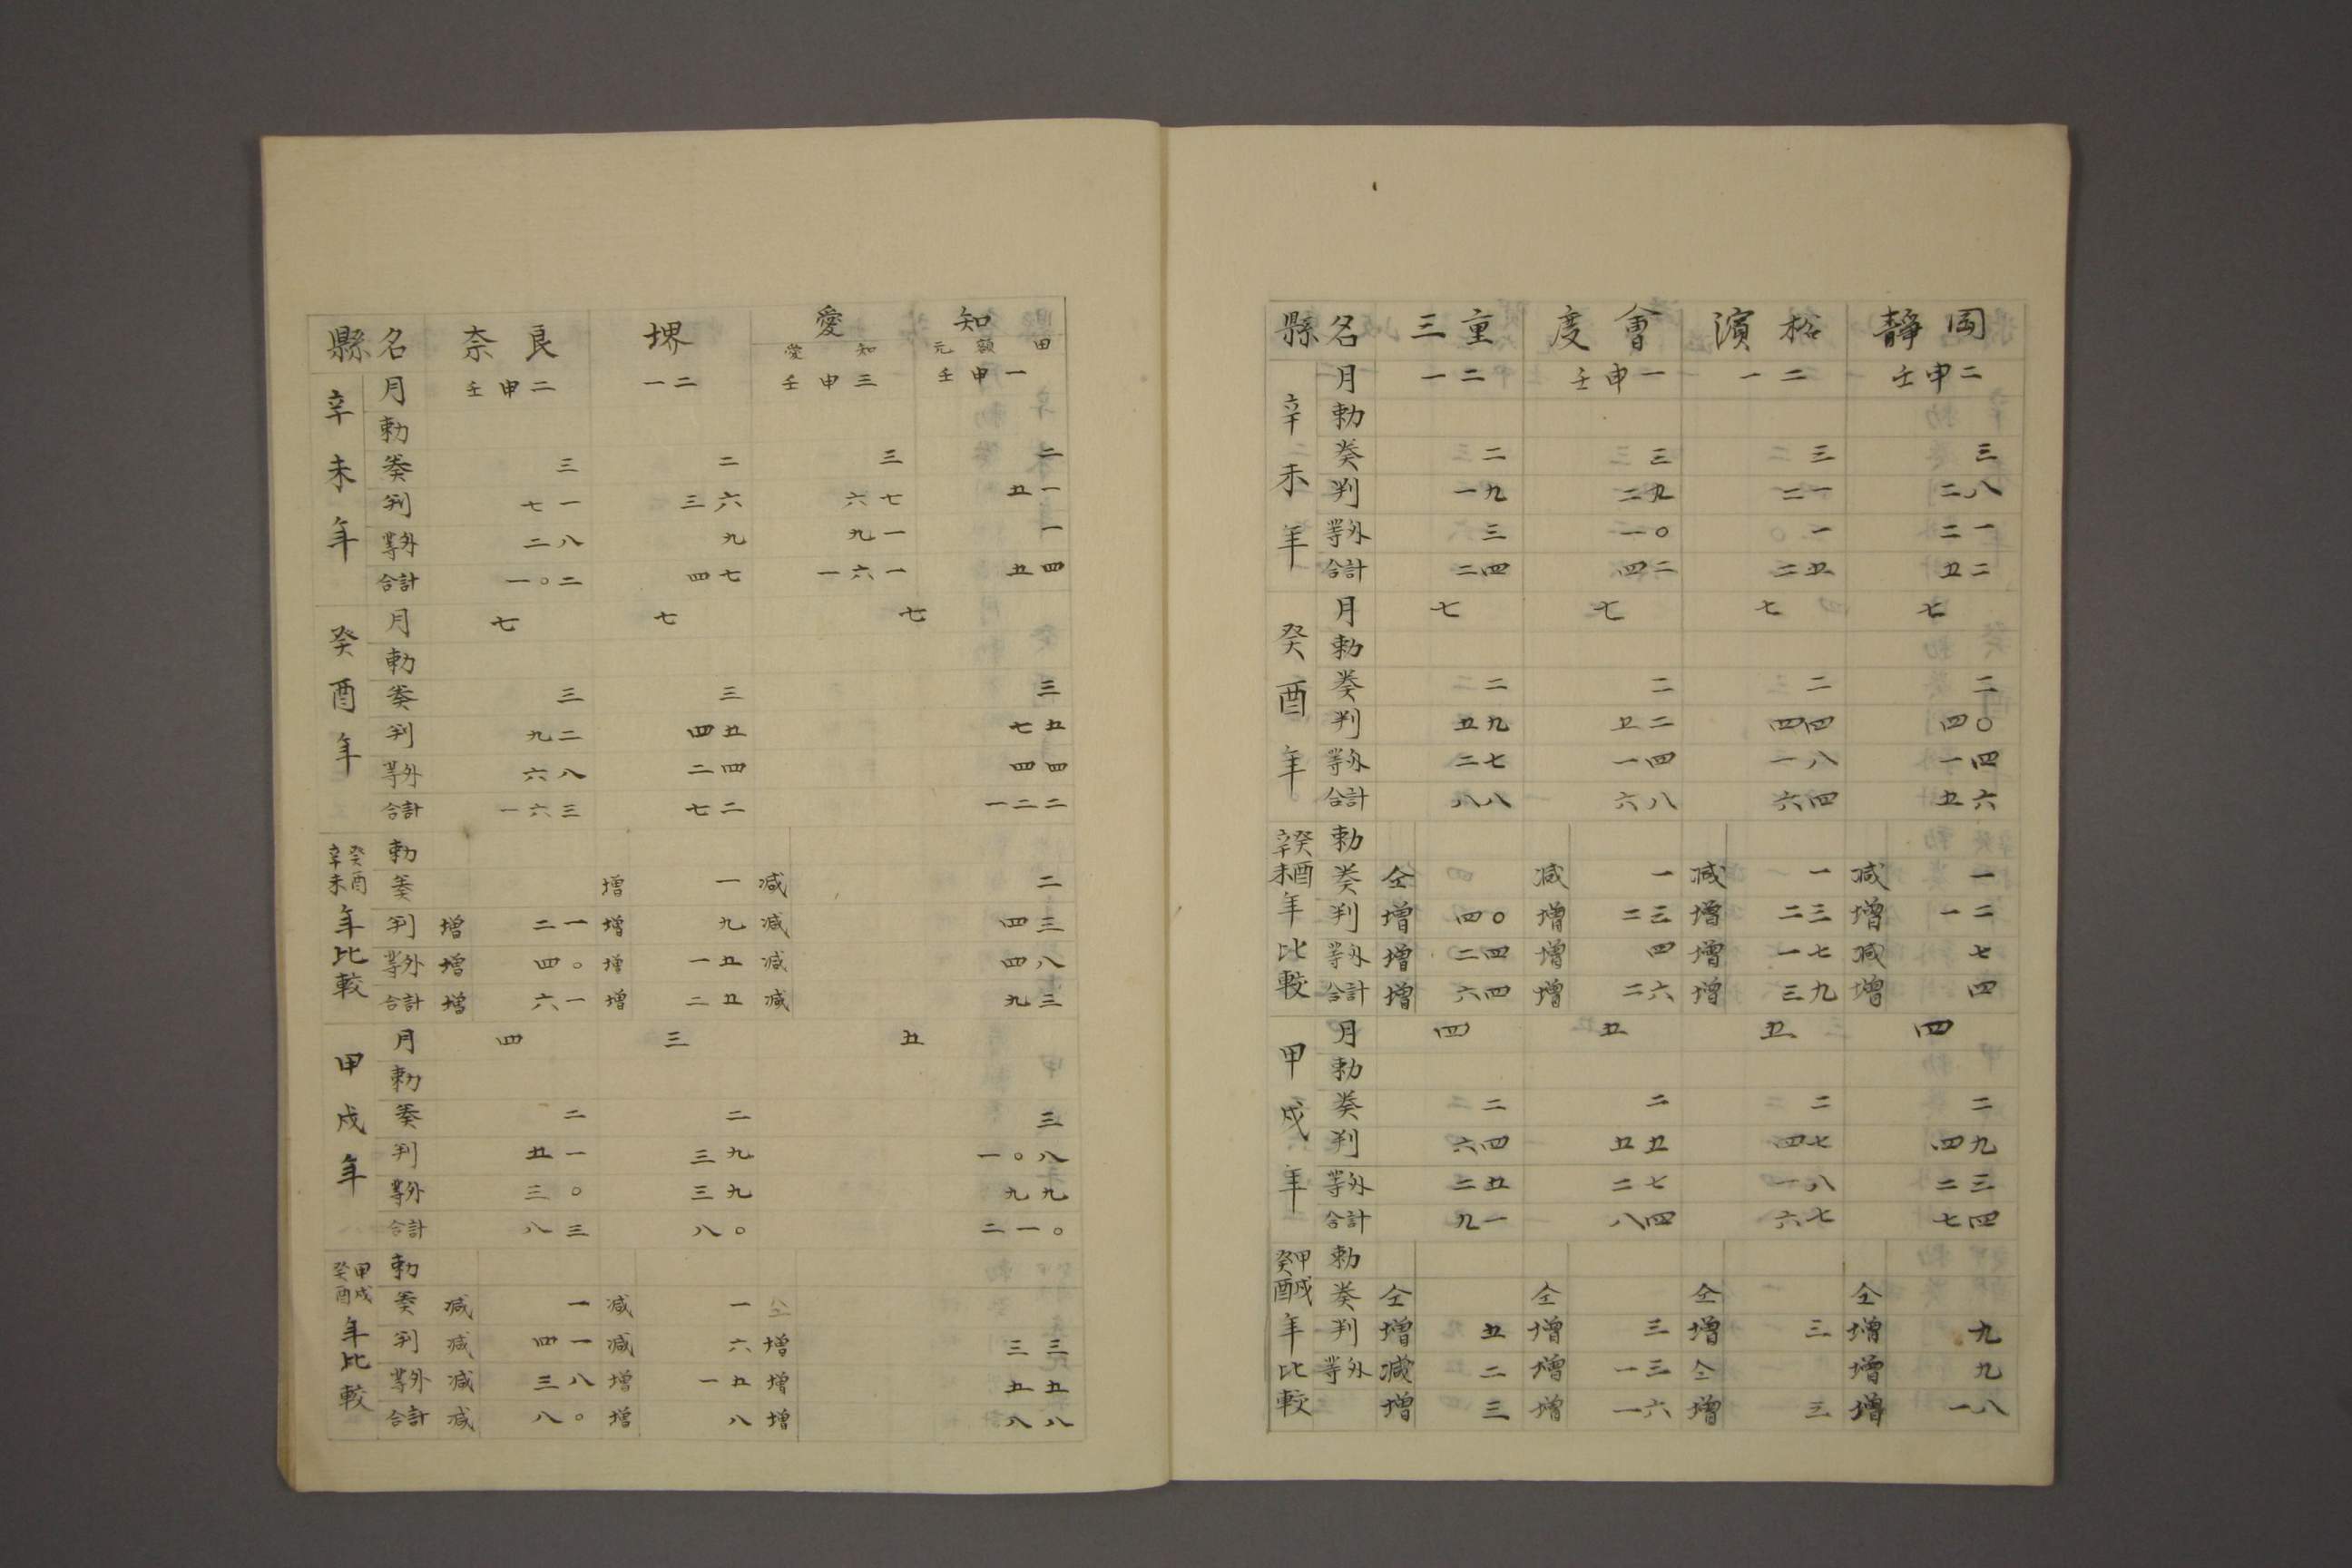 縣名 奈良 堺 愛知
愛知 元額田
辛未年 月 壬申二 一二 壬申三 壬申一
勅
奏 三 二 三 二
判 七一 三六 六七 五一
等外 二八 九 九一 一
合計 一〇二 四七 一六一 五四
癸酉年 月 七 七 七
勅
奏 三 三 三
判 九二 四五 七五
等外 六八 二四 四四
合計 一六三 七二 一二二
癸酉辛未年比較 勅
奏 増 一 減 二
判 増 二一 増 九 減 四三
等外 増 四〇 増 一五 減 四八
合計 増 六一 増 二五 減 九三
甲戌年 月 四 三 五
勅
奏 二 二 三
判 五一 三九 一〇八
等外 三〇 三九 九九
合計 八三 八〇 二一〇
甲戌癸酉年比較 勅
奏 減 一 減 一 仝
判 減 四一 減 六 増 三三
等外 減 三八 増 一五 増 五五
合計 減 八〇 増 八 増 八八
縣名 三重 度會 濱松 靜岡
辛未年 月 一二 壬申一 一二 壬申二
勅
奏 二 三 三 三
判 一九 二九 二一 二八
等外 三 一〇 一 二一
合計 二四 四二 二五 五二
癸酉年 月 七 七 七 七
勅
奏 二 二 二 二
判 五九 五二 四四 四〇
等外 二七 一四 一八 一四
合計 八八 六八 六四 五六
癸酉辛未年比較 勅
奏 仝 減 一 減 一 減 一
判 増 四〇 増 二三 増 二三 増 一二
等外 増 二四 増 四 増 一七 減 七
合計 増 六四 増 二六 増 三九 増 四
甲戌年 月 四 五 五 四
勅
奏 二 二 二 二
判 六四 五五 四七 四九
等外 二五 二七 一八 二三
合計 九一 八四 六七 七四
甲戌癸酉年比較 勅
奏 仝 仝 仝 仝
判 増 五 増 三 増 三 増 九
等外 減 二 増 一三 仝 増 九
増 三 増 一六 増 三 増 一八